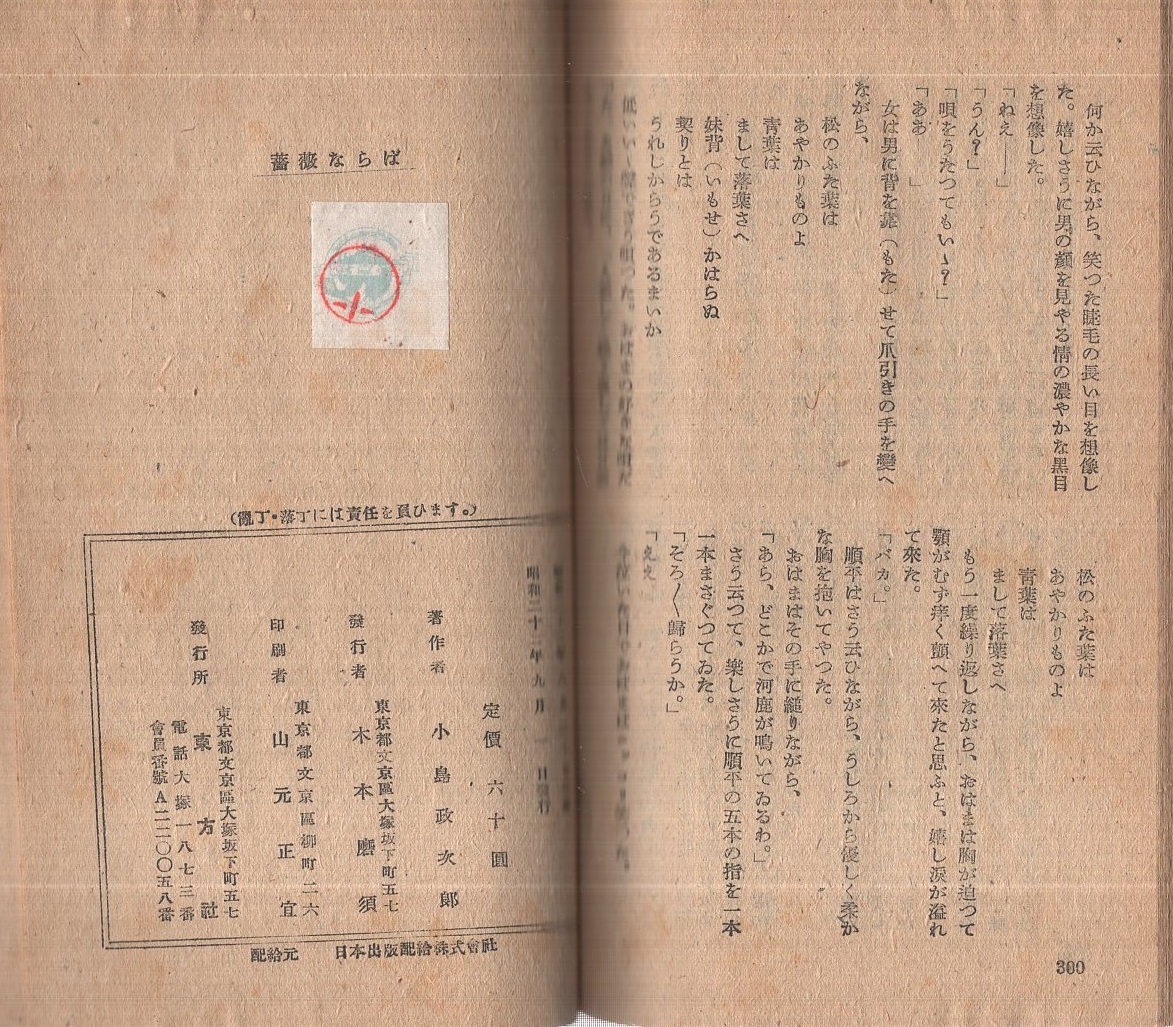 何か云ひながら、笑つた睫毛の長い目を想像し
た。嬉しさうに男の顔を見やる情の濃やかな黑目
を想像した。
「ねえ――」
「うん？」
「唄をうたつてもいゝ？」
「ああ」
女は男に背を靠（もた）せて爪引きの手を變へ
ながら、
松のふた葉は
あやかりものよ
青葉は
まして落葉さへ
妹背（いもせ）かはらぬ
契りとは
うれしからうであるまいか
松のふた葉は
あやかりものよ
青葉は
まして落葉さへ
もう一度繰り返しながら、おはまは胸が迫つて
顎がむず痒く顫へて來たと思ふと、嬉し淚が溢れ
て來た。
「バカ。」
順平はさう云ひながら、うしろから優しく柔か
な胸を抱いてやつた。
おはまはその手に縋りながら、
「あら、どこかで河鹿が鳴いてゐるわ。」
さう云つて、樂しさうに順平の五本の指を一本
一本まさぐつてゐた。
「そろ〱歸らうか。」
「ええ」
300
薔薇ならば
（亂丁・落丁には責任を負ひます。）
昭和二十二年九月一日發行
定價六十圓
著作者 小島政次郎
東京都文京區大塚坂下町五七
發行者 木本磨須
東京都文京區柳町二六
印刷者 山元正宜
東京都文京區大塚坂下町五七
發行所 東方社
電話大塚一八七三番
會員番號A二二〇〇五八番
配給元 日本出版配給株式會社